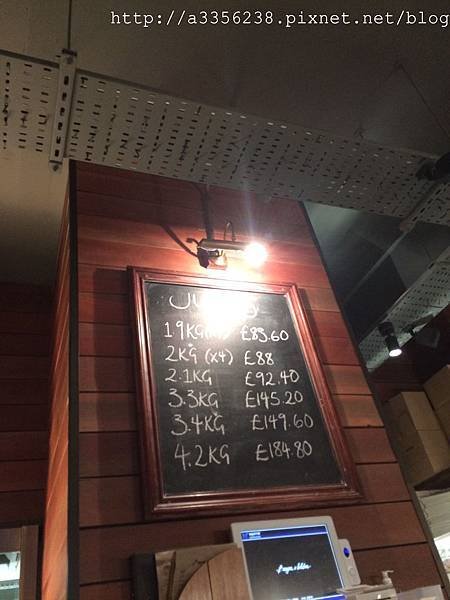 http://a3356238.pixnet.net/blog
1.9KG £83.60
2KG (x4) £88
2.1KG £92.40
3.3KG £145.20
3.4KG £149.60
4.2KG £184.80